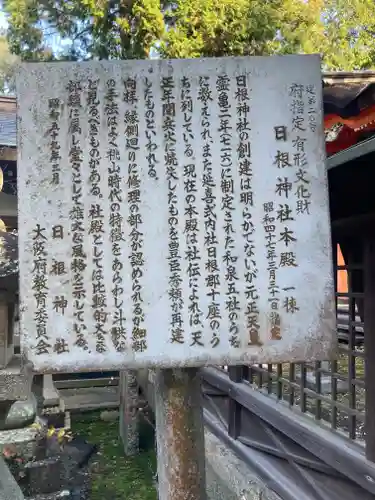 建第二〇号
府指定有形文化財
日根神社本殿 一棟
昭和四十七年三月三十一日指定
日根神社の創建は明らかでないが元正天皇
霊亀二年(七一六)に制定された和泉五社のうち
に数えられ、また延喜式内社日根郡十座のう
ちに列している。現在の本殿は社伝によれば、天
正年間兵火に焼失したものを豊臣秀頼が再建
したものといわれる。
向拝、縁側廻りに修理の部分が認められるが細部
の手法はよく桃山時代の特徴をあらわし斗栱な
ど見るべきものがある。社殿としては比較的大きな
部類に属し堂々として雄大な風格を示している。
昭和五十九年二月
日根神社
大阪府教育委員会